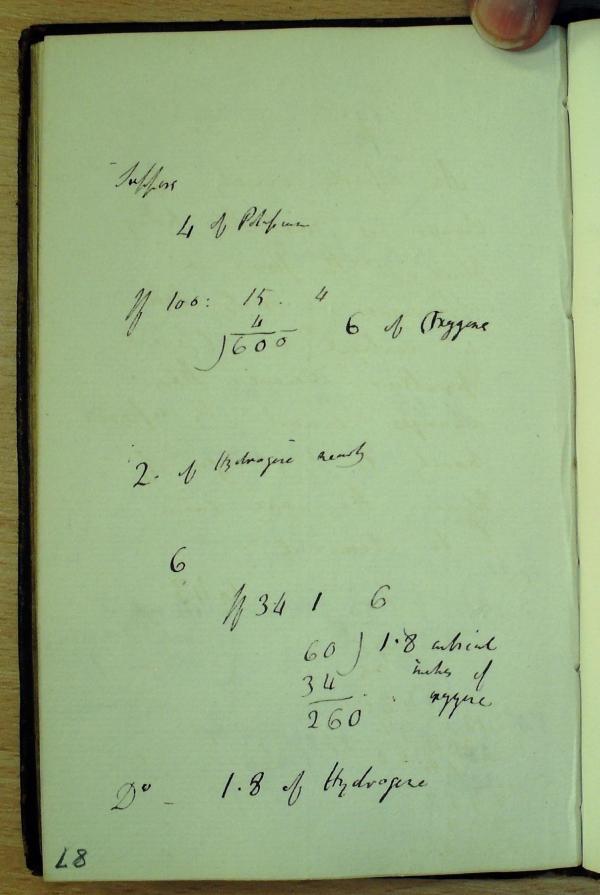 Suppose
4 of Potassium
If 100: 15. 4
4
)600
6 of Oxygene
2. of Hydrogene nearly
6
If 34 1 6
60 ) 1.8 cubical
34 inches of
260 oxygene
Do 1.8 of Hydrogene